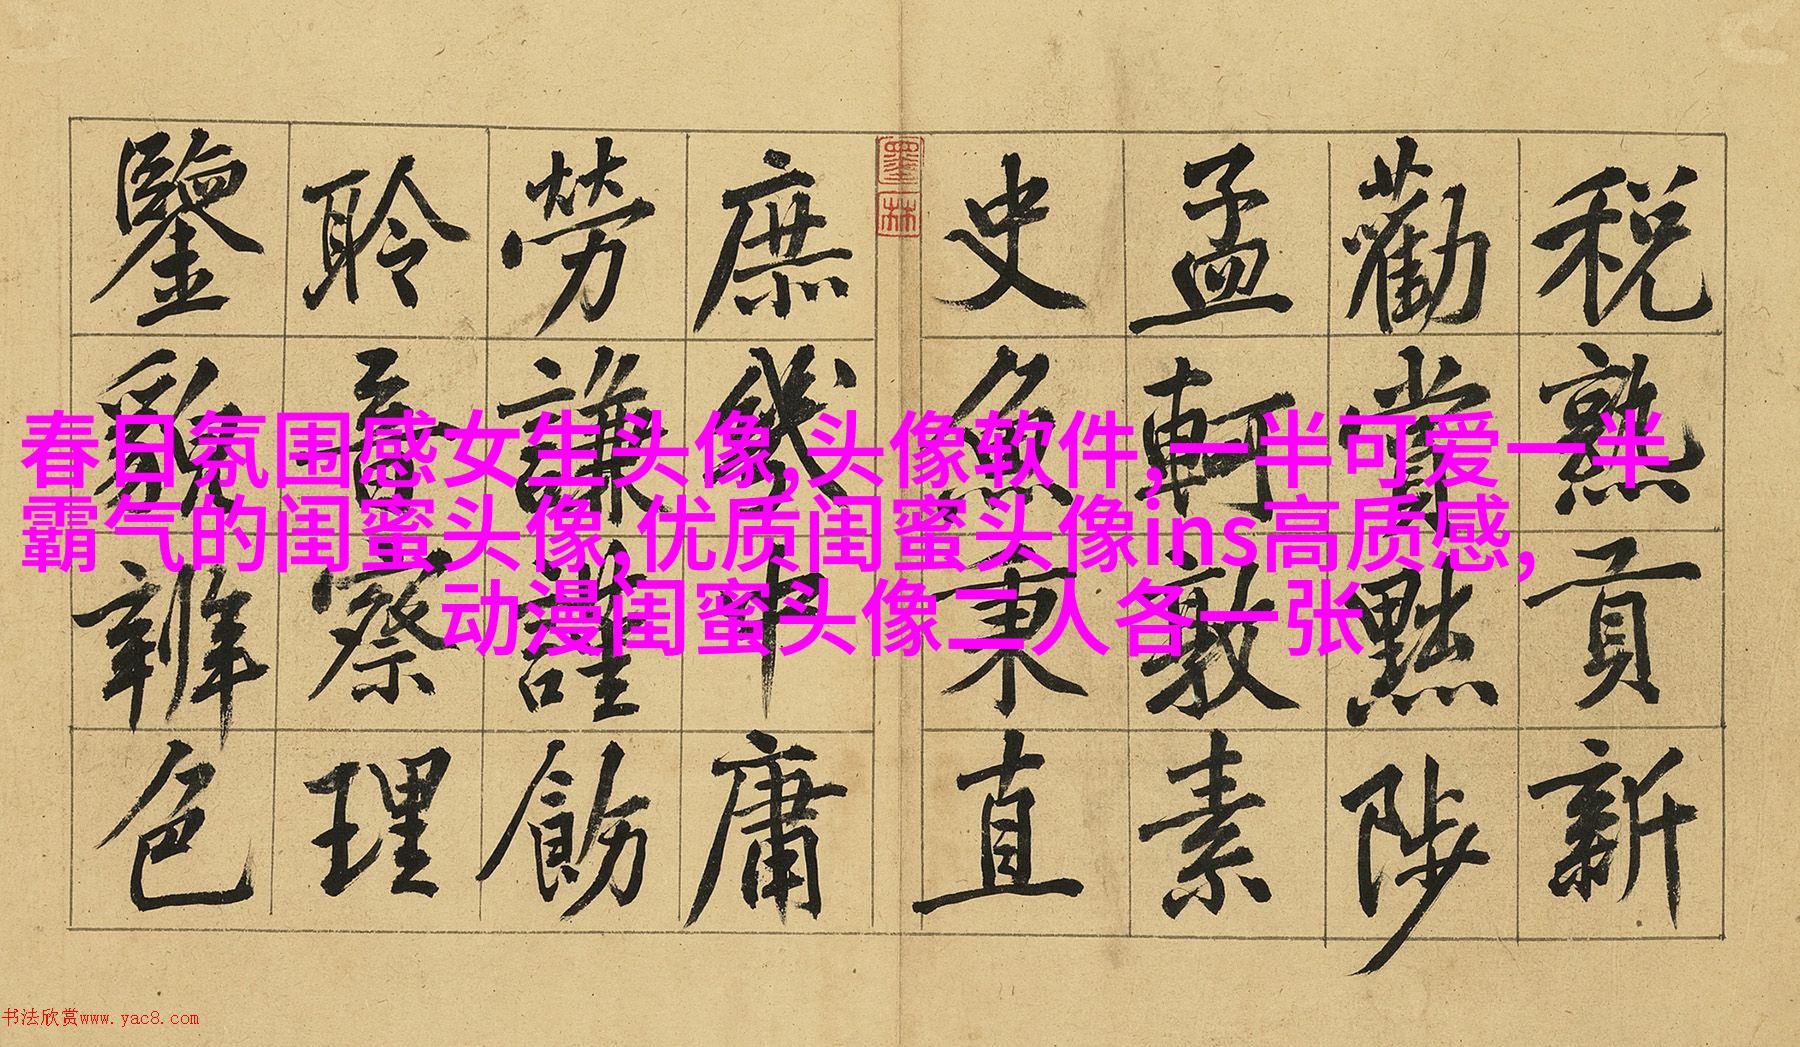 税熟貢新
勸賞黜陟
孟軻敦素
史魚秉直
墨林
庶幾中庸
勞謙謹飭
聆音察理
鑒貌辨色
春日氛围感女生头像,头像软件,一半可爱一半
霸气的闺蜜头像,优质闺蜜头像ins高质感,
动漫闺蜜头像二人各一张
书法欣赏www.yac8.com